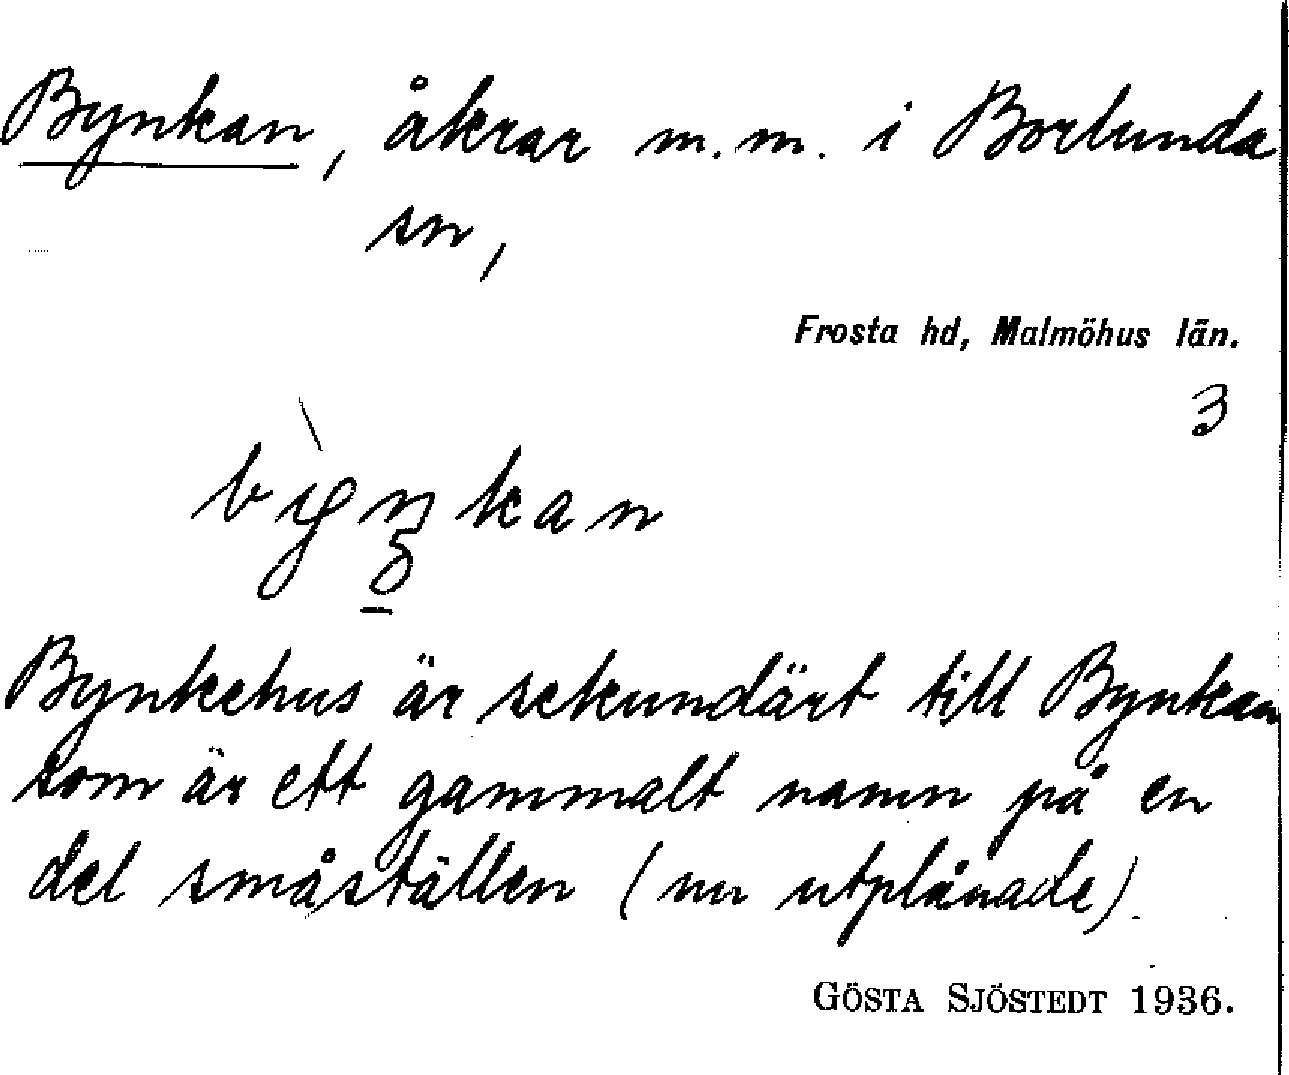 Bynkan, åkrar m.m. i Borlunda
sn,
Frosta hd, Malmöhus län.
3
Bynkehus är sekundärt till Bynkan
som är ett gammalt namn på en
del småställen (nu utplånade).
GÖSTA SJÖSTEDT 1936.